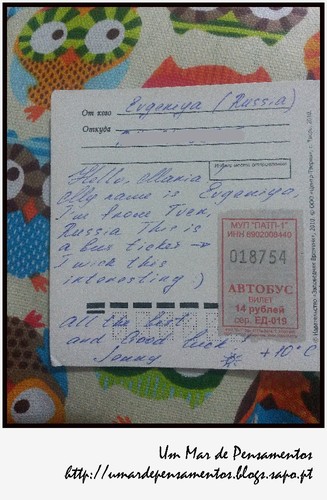 От кого Evgeniya (Russia)
Откуда
Индекс места отправления
Hello, Maria
My name is Evgeniya
I'm from Tver,
Russia This is
a bus ticket →
I wish this
interesting )
All the best
and Good luck
Jenny
+10° C
МУП "ПАТП-1"
ИНН 6902008440
018754
АВТОБУС
БИЛЕТ
14 рублей
сер. ЕД-019
Um Mar de Pensamentos
http://umardepensamentos.blogs.sapo.pt